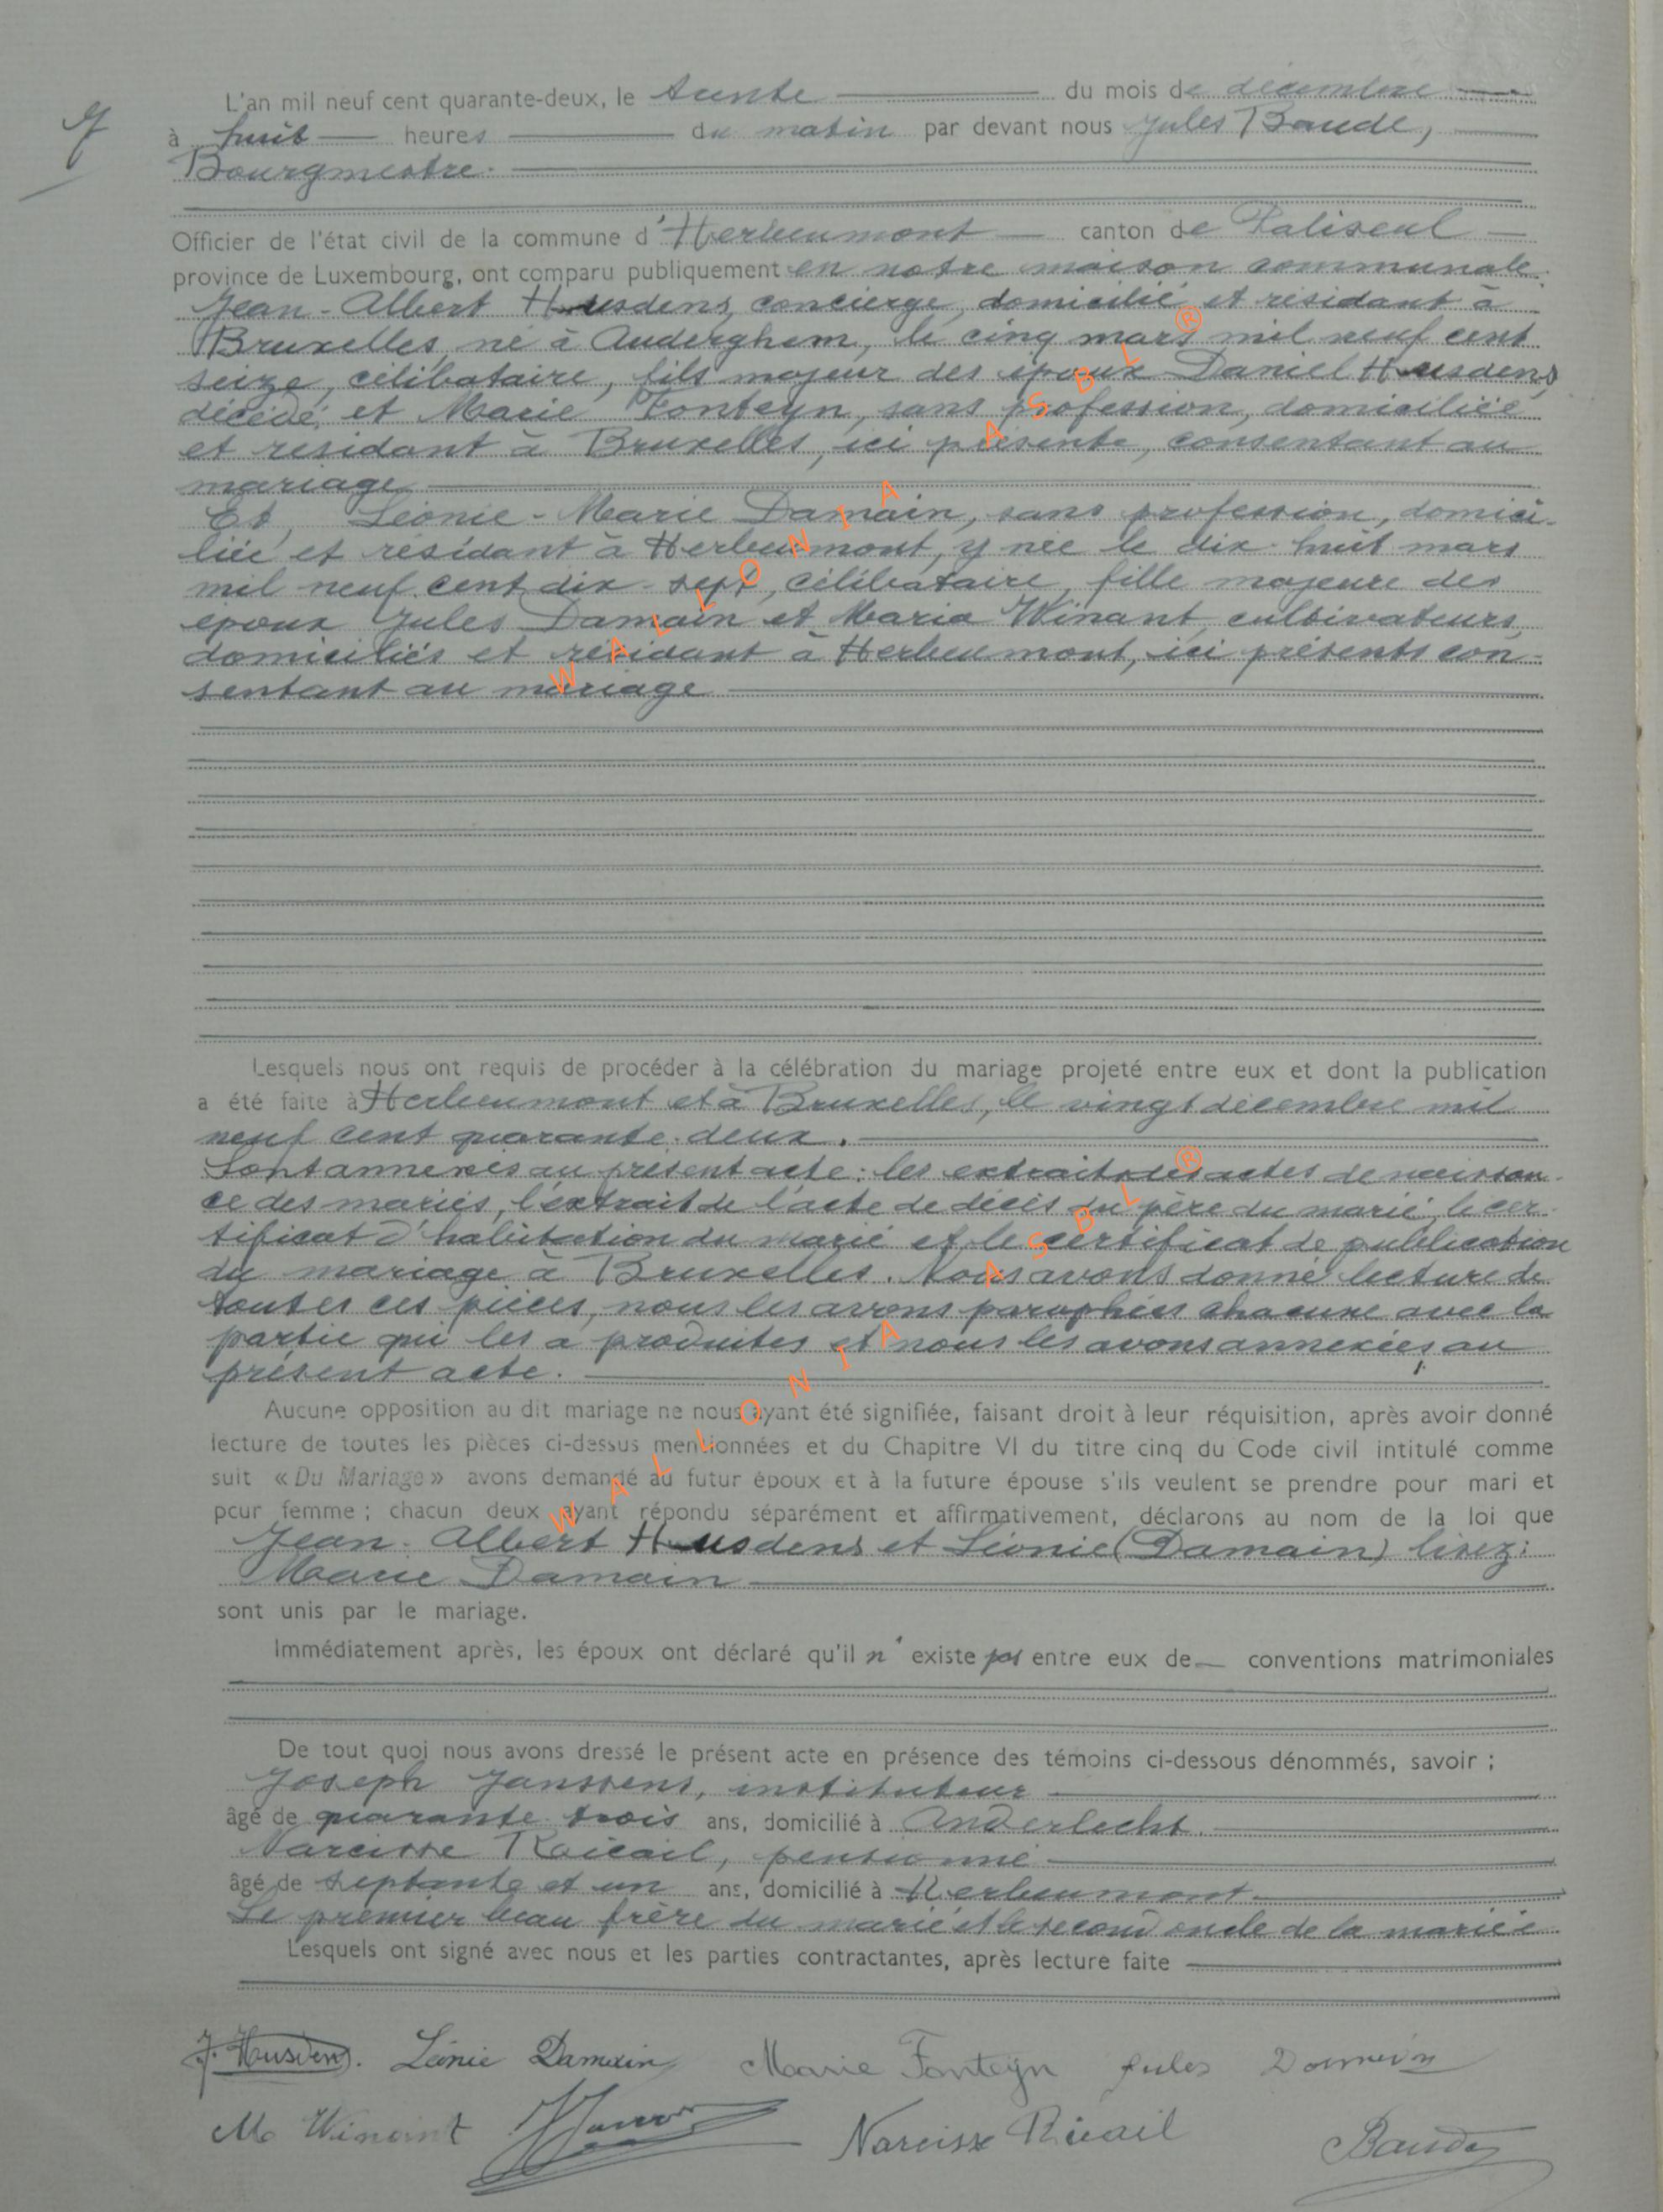 7
L'an mil neuf cent quarante-deux, le trente du mois de décembre
à huit heures du matin par devant nous Jules Baude,
Bourgmestre.
Officier de l'état civil de la commune d'Herbeumont canton de Paliseul
province de Luxembourg, ont comparu publiquement en notre maison communale.
Jean-Albert Heusdens, concierge, domicilié et résidant à
Bruxelles, né à Auderghem, le cinq mars mil neuf cent
seize, célibataire, fils majeur des époux Daniel Heusdens,
décédé, et Marie Fonteyn, sans profession, domiciliée
et résidant à Bruxelles, ici présente, consentant au
mariage
Et, Léonie-Marie Damain, sans profession, domici-
liée et résidant à Herbeumont, y née le dix-huit mars
mil neuf cent dix-sept, célibataire, fille majeure des
époux Jules Damain et Maria Winant, cultivateurs,
domiciliés et résidant à Herbeumont, ici présents con-
sentant au mariage
Lesquels nous ont requis de procéder à la célébration du mariage projeté entre eux et dont la publication
a été faite à Herbeumont et à Bruxelles, le vingt décembre mil
neuf cent quarante-deux.
Sont annexés au présent acte: les extraits des actes de naissan-
ce des mariés, l'extrait de l'acte de décès du père du marié, le cer-
tificat d'habitation du marié et le certificat de publication
du mariage à Bruxelles. Nous avons donné lecture de
toutes ces pièces, nous les avons paraphées chacune avec la
partie qui les a produites et nous les avons annexées au
présent acte.
Aucune opposition au dit mariage ne nous ayant été signifiée, faisant droit à leur réquisition, après avoir donné
lecture de toutes les pièces ci-dessus mentionnées et du Chapitre VI du titre cinq du Code civil intitulé comme
suit « Du Mariage » avons demandé au futur époux et à la future épouse s'ils veulent se prendre pour mari et
pour femme ; chacun deux ayant répondu séparément et affirmativement, déclarons au nom de la loi que
Jean-Albert Heusdens et Léonie (Damain) lisez:
Marie Damain
sont unis par le mariage.
Immédiatement après, les époux ont déclaré qu'il n'existe pas entre eux de conventions matrimoniales
De tout quoi nous avons dressé le présent acte en présence des témoins ci-dessous dénommés, savoir ;
Joseph Janssens, instituteur
âgé de quarante-trois ans, domicilié à Anderlecht.
Narcisse Ricail, pensionné
âgé de septante et un ans, domicilié à Herbeumont
Le premier beau frère du marié et le second oncle de la mariée
Lesquels ont signé avec nous et les parties contractantes, après lecture faite
J. Heusdens. Léonie Damain Marie Fonteyn Jules Damain
M Winant Narcisse Ricail Baude
WALLONIA ASBL ®
WALLONIA ASBL ®